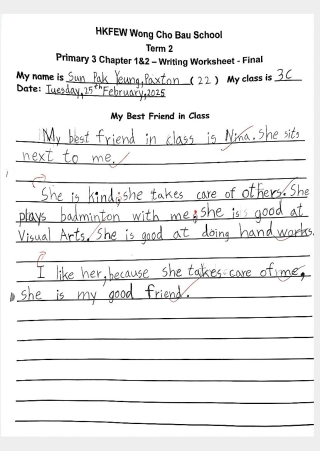 HKFEW Wong Cho Bau School
Term 2
Primary 3 Chapter 1&2 – Writing Worksheet - Final
My name is Sun Pak Yeung, Paxton ( 22 ) My class is 3C
Date: Tuesday, 25th February, 2025
My Best Friend in Class
My best friend in class is Nina. She sits
next to me.
She is kind; she takes care of others. She
plays badminton with me; she is good at
Visual Arts. She is good at doing handworks.
I like her, because she takes care of me,
she is my good friend.